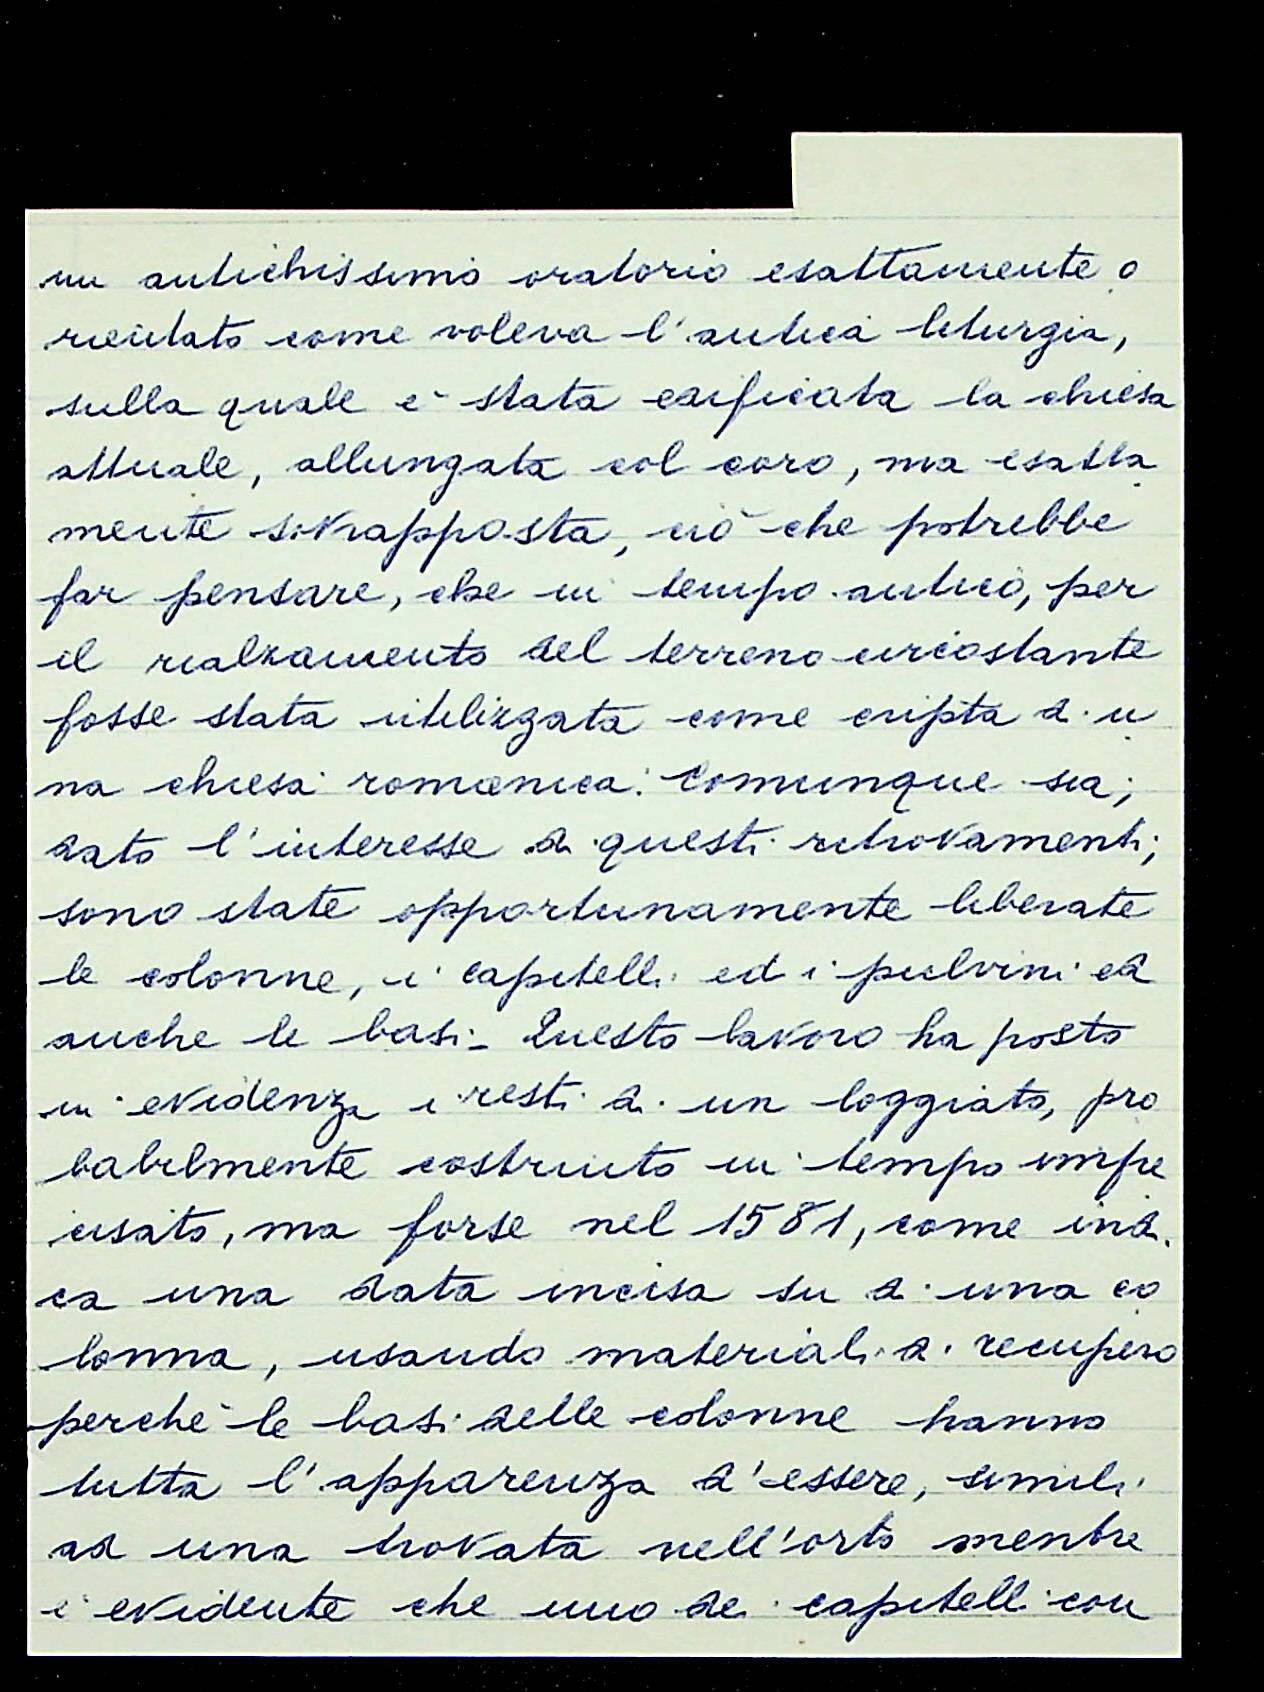 un antichissimo oratorio esattamente o
rientato come voleva l'antica liturgia,
sulla quale è stata edificata la chiesa
attuale, allungata col coro, ma esatta
mente sovrapposta, ciò che potrebbe
far pensare, che in tempo antico, per
il rialzamento del terreno circostante
fosse stata utilizzata come cripta di u
na chiesa romanica. Comunque sia;
dato l'interesse di questi ritrovamenti;
sono state opportunamente liberate
le colonne, i capitelli ed i pulvini ed
anche le basi - Questo lavoro ha posto
in evidenza i resti di un loggiato, pro
babilmente costruito in tempo impre
cisato, ma forse nel 1581, come indi
ca una data incisa su di una co
lonna, usando materiali di recupero
perchè le basi delle colonne hanno
tutta l'apparenza d'essere, simili
ad una trovata nell'orto mentre
è evidente che uno dei capitelli con